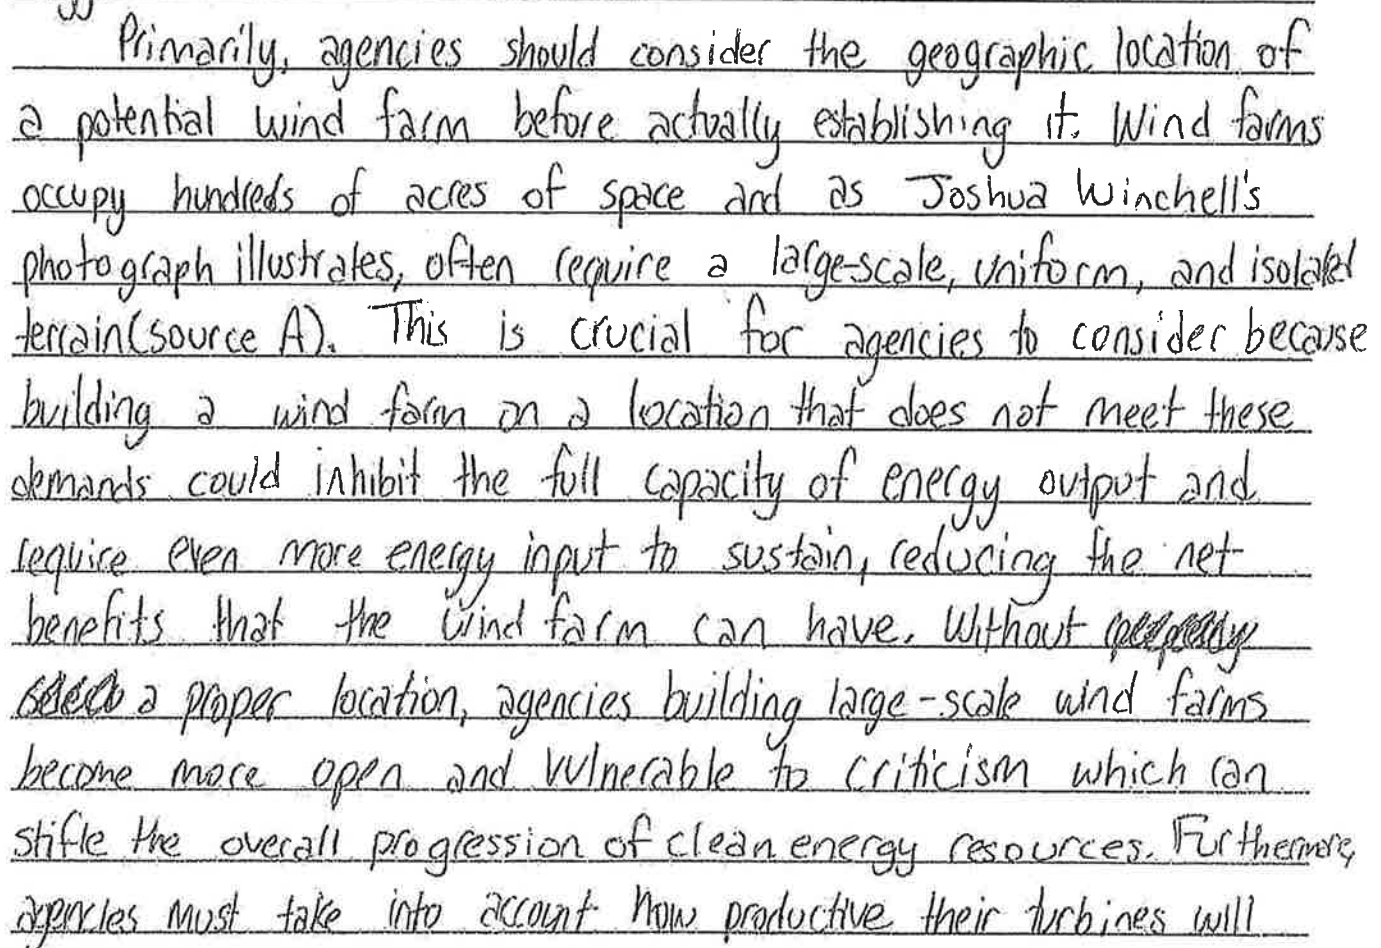 Primarily, agencies should consider the geographic location of
a potential wind farm before actually establishing it. Wind farms
occupy hundreds of acres of space and as Joshua Winchell's
photograph illustrates, often require a large-scale, uniform, and isolated
terrain (source A). This is crucial for agencies to consider because
building a wind farm on a location that does not meet these
demands could inhibit the full capacity of energy output and
require even more energy input to sustain, reducing the net
benefits that the wind farm can have. Without
a proper location, agencies building large-scale wind farms
become more open and vulnerable to criticism which can
stifle the overall progression of clean energy resources. Furthermore,
agencies must take into account how productive their turbines will